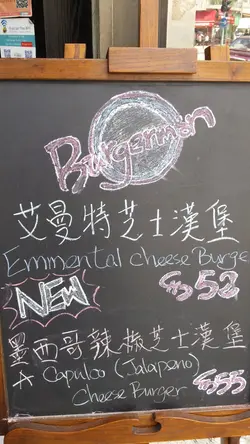 Burgerman
艾曼特芝士漢堡
Emmental cheese Burge
NEW
$52
墨西哥辣椒芝士漢堡
A Capulco (Jalapeno)
Cheese Burger
$55